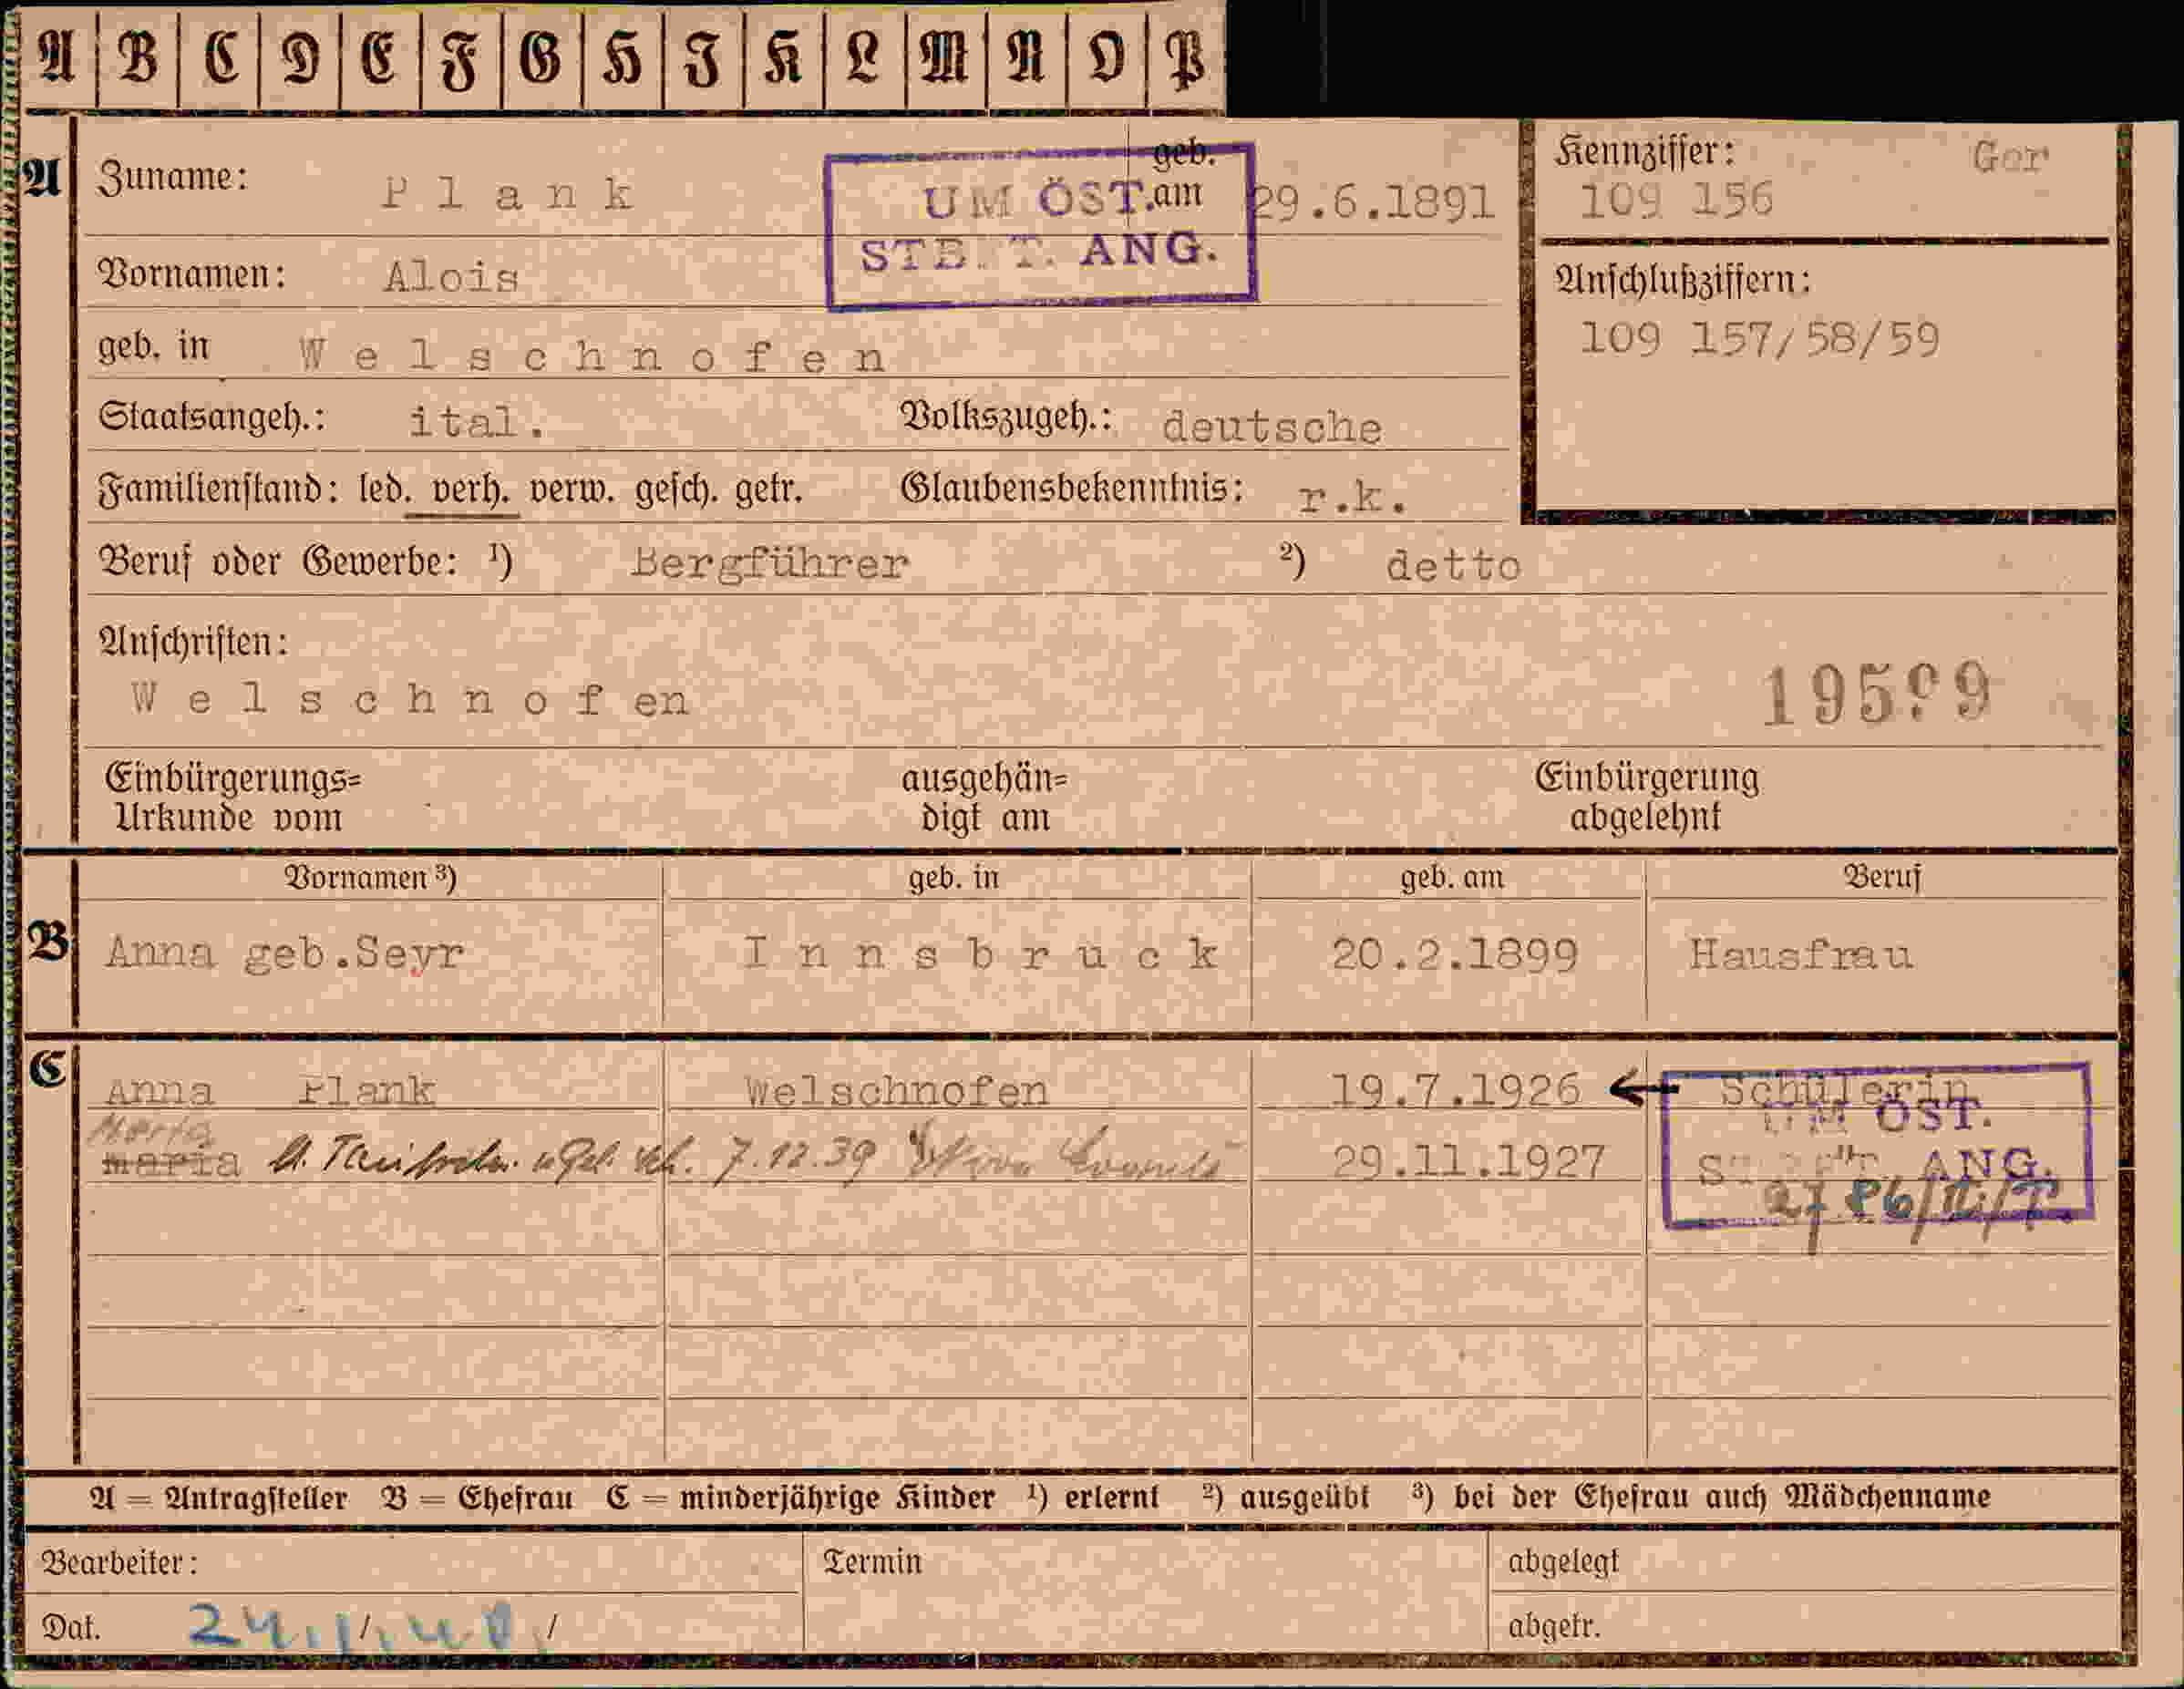 A B C D E F G H I K L M N O P
A Zuname: Plank geb. am 29.6.1891
UM ÖST.
STB. T. ANG.
Kennziffer: Gor
109 156
Vornamen: Alois
Anschlußziffern:
109 157/58/59
geb. in Welschnofen
Staatsangeh.: ital. Volkszugeh.: deutsche
Familienstand: led. verh. verw. gesch. getr. Glaubensbekenntnis: r.k.
Beruf oder Gewerbe: ¹) Bergführer ²) detto
Anschriften:
Welschnofen
Einbürgerungs= Urkunde vom ausgehän= digt am Einbürgerung abgelehnt
Vornamen ³) geb. in geb. am Beruf
B Anna geb.Seyr Innsbruck 20.2.1899 Hausfrau
C Anna Plank Welschnofen 19.7.1926 ← Schülerin
UM ÖST.
Maria
maria 7.12.39 29.11.1927
ANG.
A = Antragsteller B = Ehefrau C = minderjährige Kinder ¹) erlernt ²) ausgeübt ³) bei der Ehefrau auch Mädchenname
Bearbeiter: Termin abgelegt
Dat. 24./1.40./ abgetr.